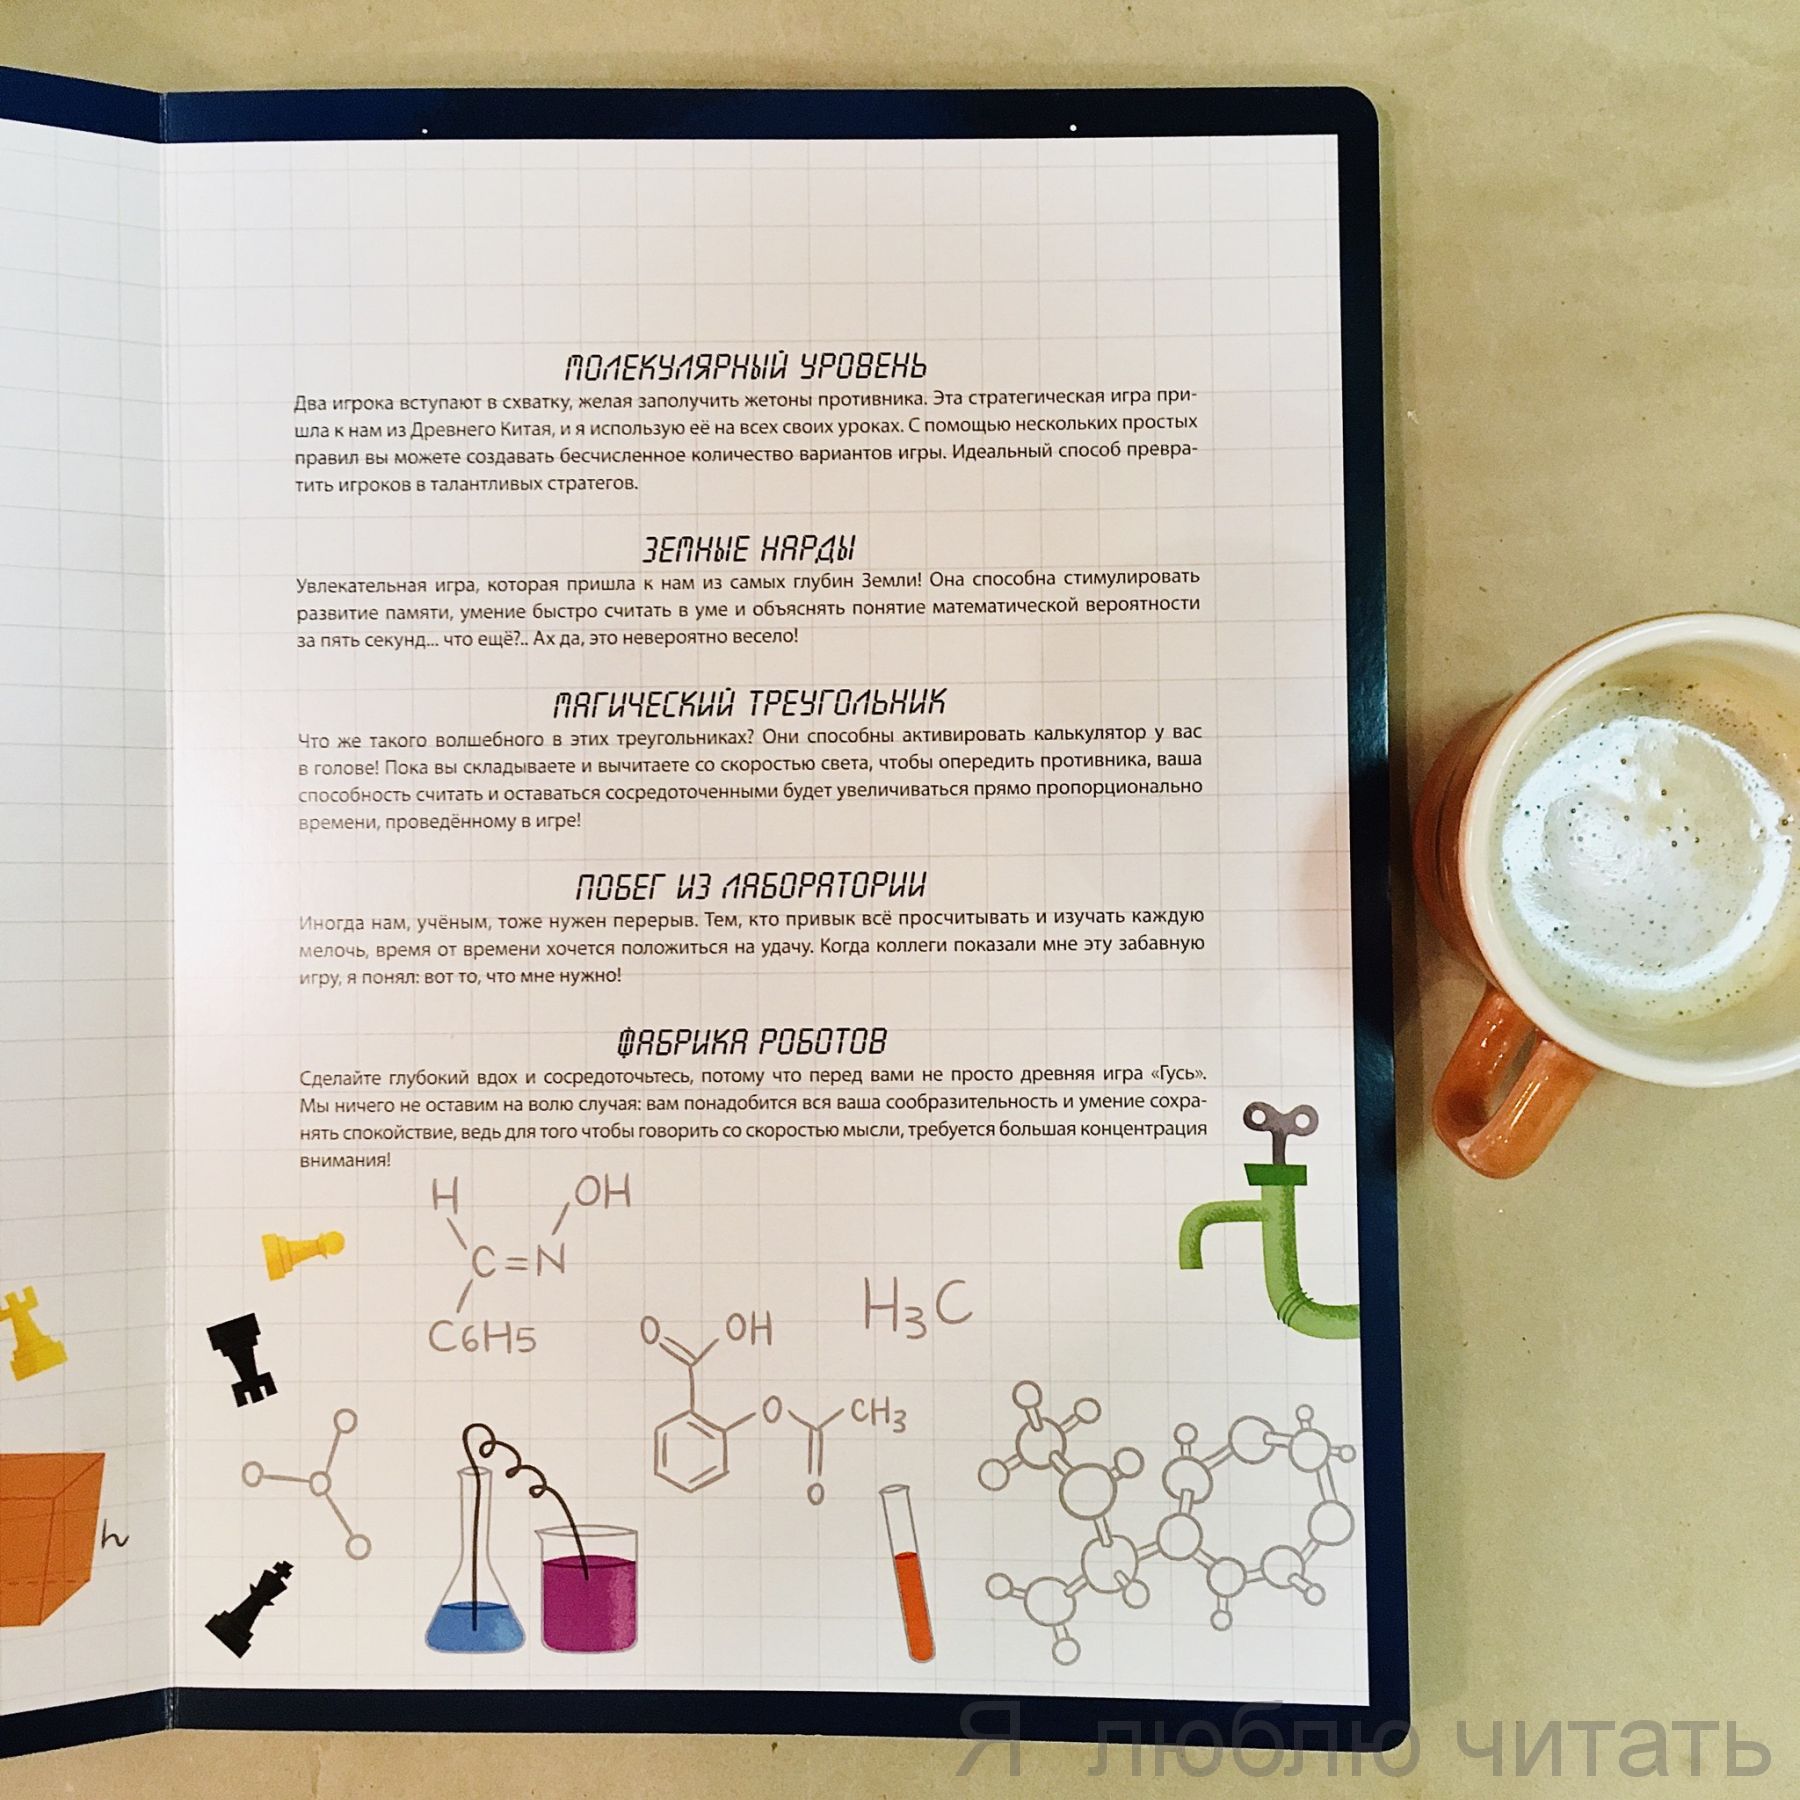 МОЛЕКУЛЯРНЫЙ УРОВЕНЬ
Два игрока вступают в схватку, желая заполучить жетоны противника. Эта стратегическая игра при-
шла к нам из Древнего Китая, и я использую её на всех своих уроках. С помощью нескольких простых
правил вы можете создавать бесчисленное количество вариантов игры. Идеальный способ превра-
тить игроков в талантливых стратегов.
ЗЕМНЫЕ НАРДЫ
Увлекательная игра, которая пришла к нам из самых глубин Земли! Она способна стимулировать
развитие памяти, умение быстро считать в уме и объяснять понятие математической вероятности
за пять секунд... что ещё?.. Ах да, это невероятно весело!
МАГИЧЕСКИЙ ТРЕУГОЛЬНИК
Что же такого волшебного в этих треугольниках? Они способны активировать калькулятор у вас
в голове! Пока вы складываете и вычитаете со скоростью света, чтобы опередить противника, ваша
способность считать и оставаться сосредоточенными будет увеличиваться прямо пропорционально
времени, проведённому в игре!
ПОБЕГ ИЗ ЛАБОРАТОРИИ
Иногда нам, учёным, тоже нужен перерыв. Тем, кто привык всё просчитывать и изучать каждую
мелочь, время от времени хочется положиться на удачу. Когда коллеги показали мне эту забавную
игру, я понял: вот то, что мне нужно!
ФАБРИКА РОБОТОВ
Сделайте глубокий вдох и сосредоточьтесь, потому что перед вами не просто древняя игра «Гусь».
Мы ничего не оставим на волю случая: вам понадобится вся ваша сообразительность и умение сохра-
нять спокойствие, ведь для того чтобы говорить со скоростью мысли, требуется большая концентрация
внимания!
H OH
C=N
C6H5
O OH
H3C
O CH3
O
h
Я люблю читать